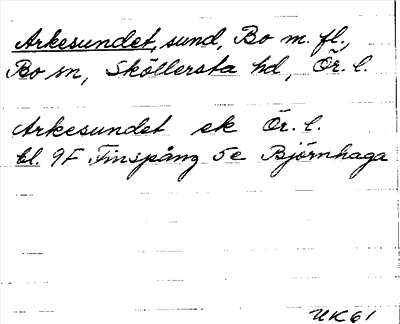 Arkesundet, sund, Bo m. fl.,
Bo sn, Sköllersta hd, Ör. l.
Arkesundet ek Ör. l.
bl. 9F Finspång 5e Björnhaga
UK61